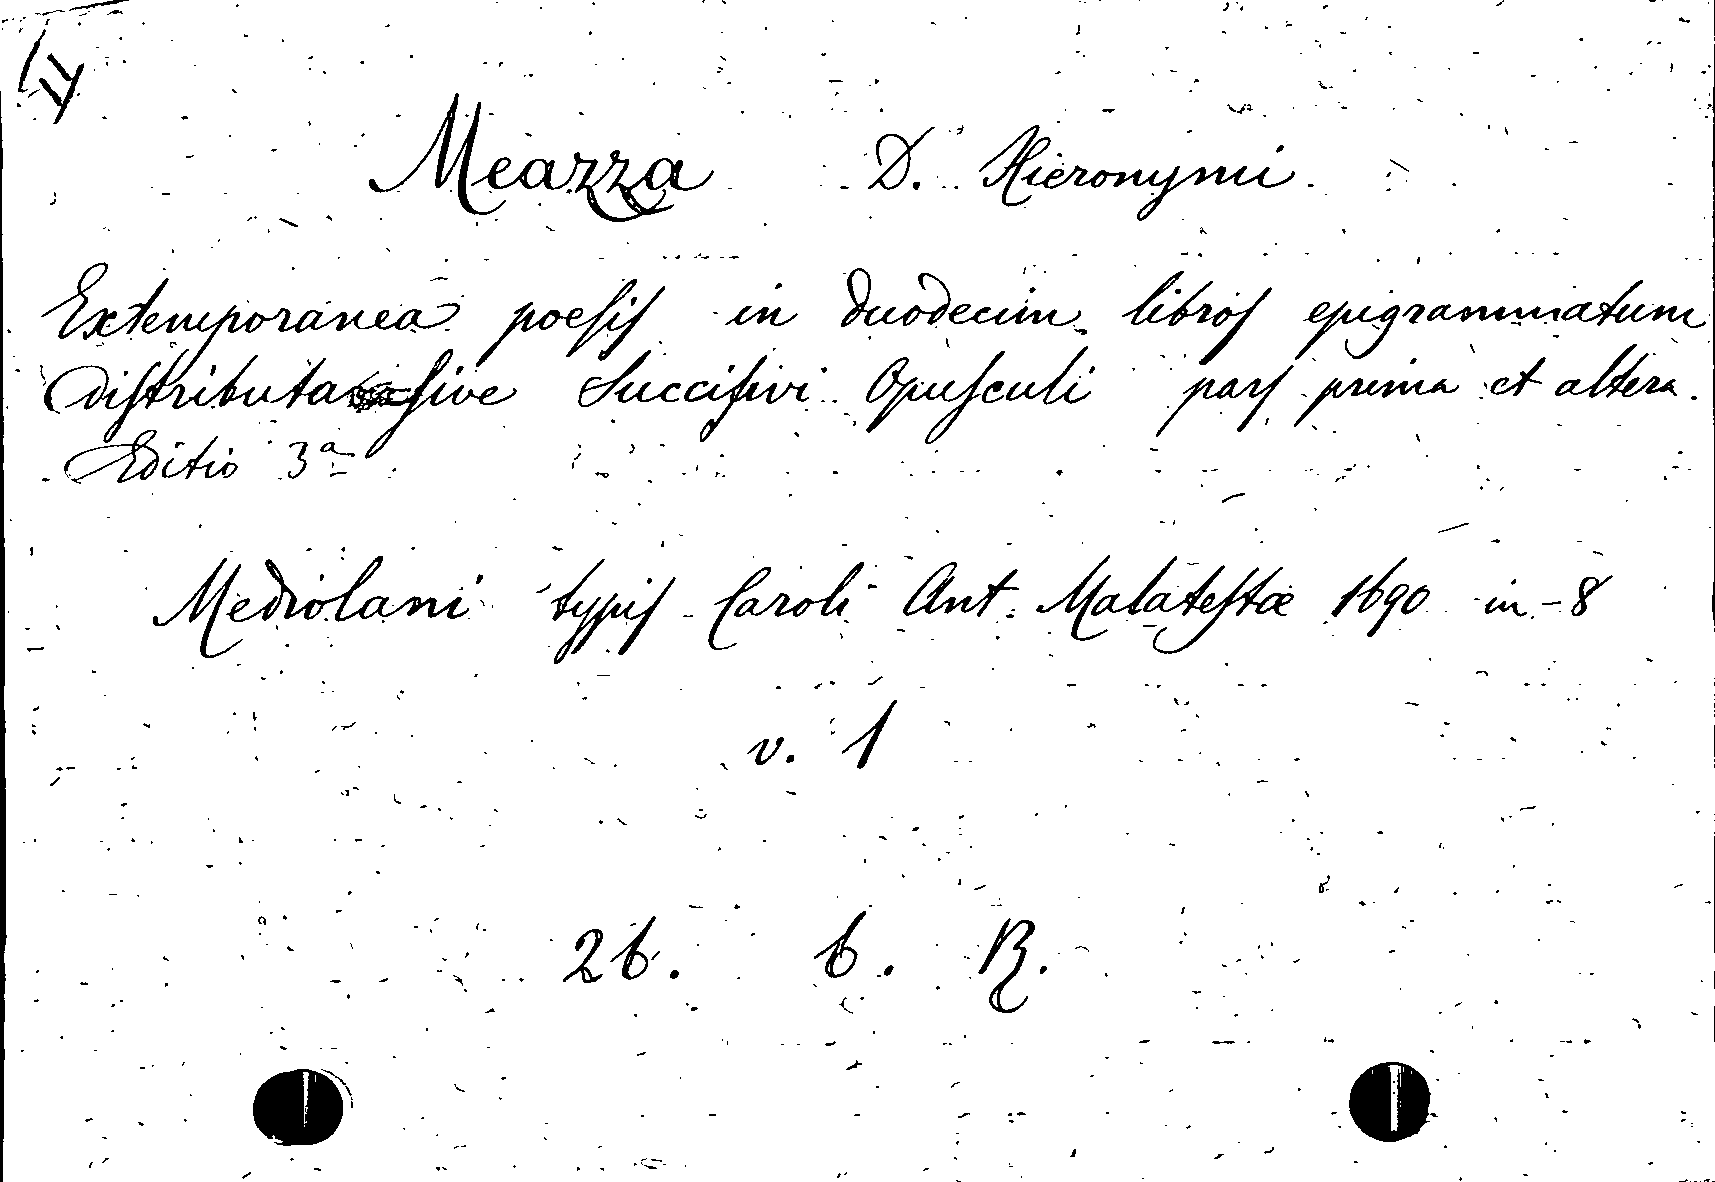 Meazza D. Hieronymi
Extemporanea poesis in duodecim libros epigrammatum
distributa sive Succisivi Opusculi pars prima et altera.
Editio 3a
Mediolani typis Caroli Ant. Malatestæ 1690 in-8
v. 1
26. 6. R.